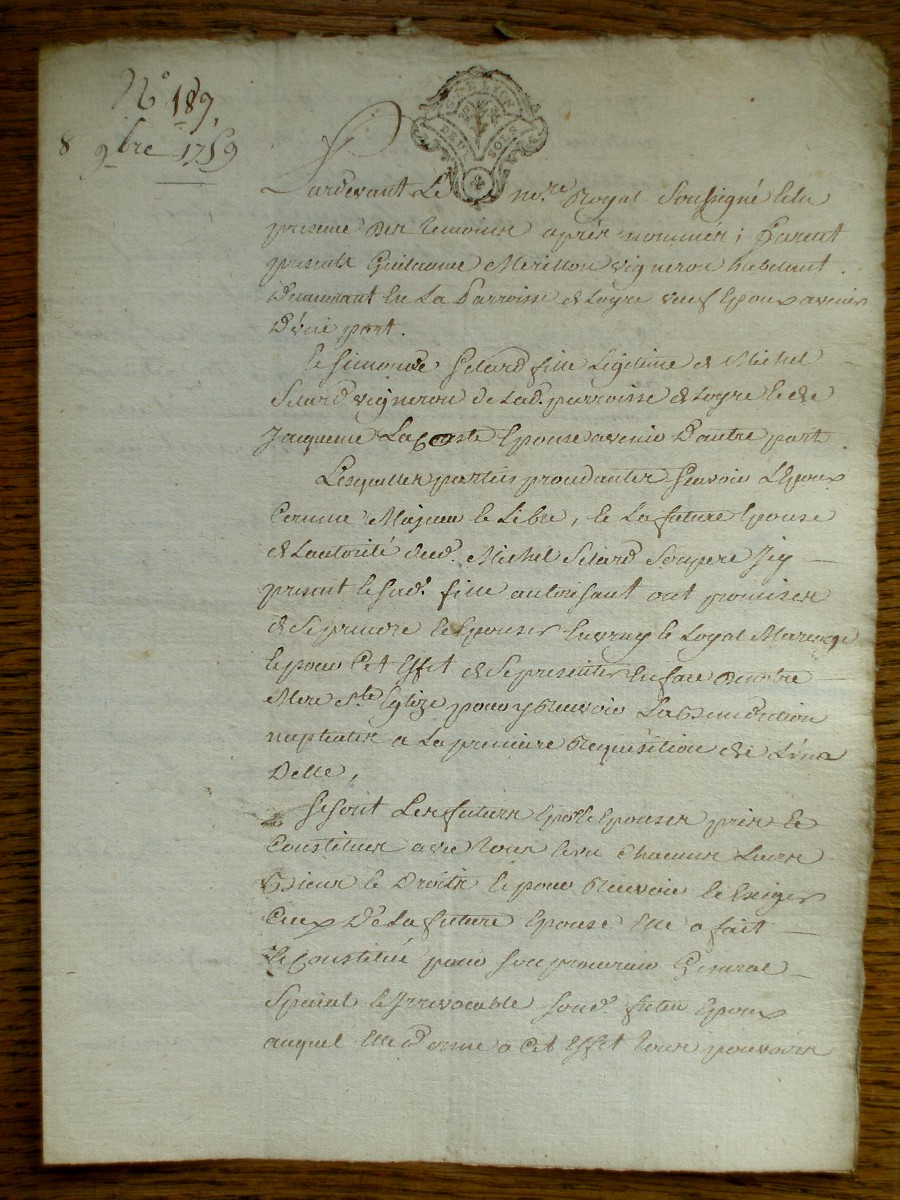 N° 189,
8 9bre 1759
GNE LYON
DEUX SOLS
Pardevant Le no.re Royal Soussigné & en
presence des temoins après nommés ; furent
presents Guilaume Merillon vigneron habitant
Demeurant En La Parroisse de Loyre veuf Epoux avenir
D'une part.
Et Simonde Setard fille Legitime de Michel
Setard vigneron de Lad. parroisse de Loyre & de
Jaqueme Lacoste Epouse avenir D'autre part
Lesquelles parties procedantes Scavoir L'Epoux
Comme Majeur & Libre, & La future Epouse
de L'autorité dud. Michel Setard Son pere Icy
present & Sad. fille autorisant ont promis
de Se prendre & Epouser En vray & Loyal Mariage
& pour Cet Effet de Se presenter En face de notre
Mere S.te Eglize pour y Recevoir La Benediction
nuptialle a La premiere Requisition de L'un
Delle,
Se Sont Les futurs Epoux & Epouse pris &
Constitués avec tous & un Chacuns Leurs
Biens & Droits & pour Recevoir & Exiger
Ceux De La future Epouse Elle a fait
& Constitué pour Son procureur General
Special & Irrevocable Sond. futur Epoux
auquel Elle Donne a Cet Effet tous pouvoirs